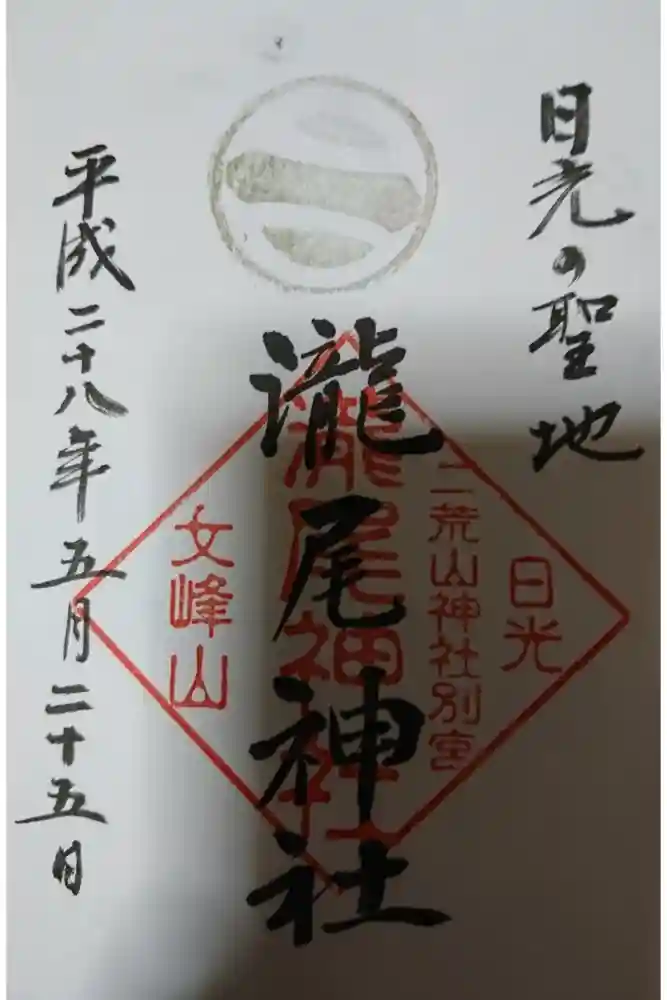 日光の聖地
日光
二荒山神社別宮
瀧尾神社
瀧尾神社
女峰山
平成二十八年五月二十五日